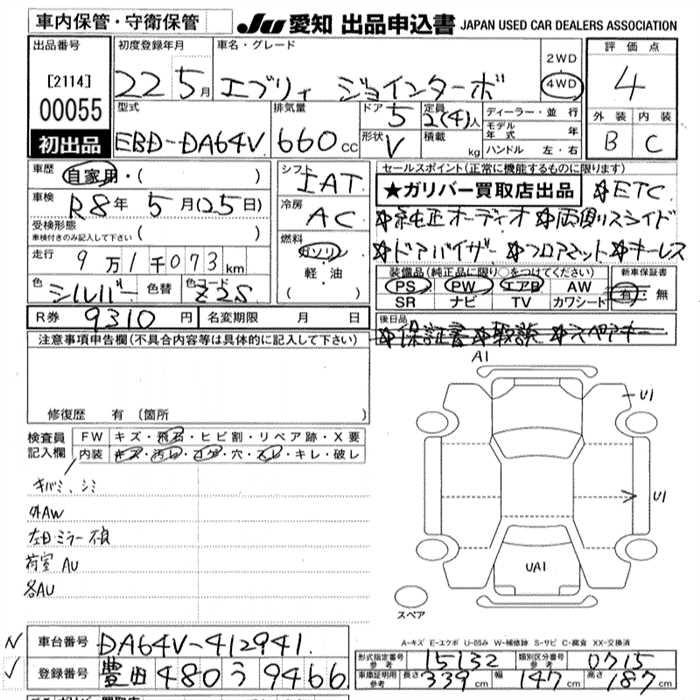 車内保管・守衛保管 JU 愛知 出品申込書 JAPAN USED CAR DEALERS ASSOCIATION
出品番号 初度登録年月 車名・グレード 評価点
[2114] 22 5月 エブリィ ジョインターボ 2WD 4WD 4
00055 型式 排気量 ドア 5 定員 2(4)人 ディーラー・並行 外装 内装
初出品 EBD-DA64V 660cc 形状 V 積載 kg モデル年式 年 B C
ハンドル 左・右
車歴 自家用・( ) シフト IAT セールスポイント(正常に機能するものに限ります)
車検 R8年 5月(25日) 冷房 AC ★ガリバー買取店出品 ☆ETC
受検形態 ☆純正オーディオ ☆両側スライド
車検付きのみ記入して下さい( )
走行 9万1千073km 燃料 ガソリン 軽・油 ( ) ☆ドアバイザー ☆フロアマット ☆キーレス
色 シルバー 色替 色コード Z2S 装備品(純正品に限り○をつけてください) 新車保証書
PS PW エアB AW 有・無
SR ナビ TV カワシート
R券 9310円 名変期限 月 日 後日品
☆保証書 ☆取説 ☆スペアキー
注意事項申告欄(不具合内容等は具体的に記入して下さい)
修復歴 有 (箇所
検査員記入欄 FW キズ・飛石・ヒビ割・リペア跡・X要
内装 キズ・汚れ・コゲ・穴・スレ・キレ・破レ
キバミ、シミ
外AW
左日ミラー不良
荷室AU
各AU
A1
U1
U1
UA1
スペア
A-キズ E-エクボ U-凹み W-補修跡 S-サビ C-腐食 XX-交換済
車台番号 DA64V-412941
登録番号 豊田 480 う 9466
形式指定番号 参考 15132 類別区分番号 参考 0715
車庫証明用 参考 長さ 339cm 幅 147cm 高さ 187cm